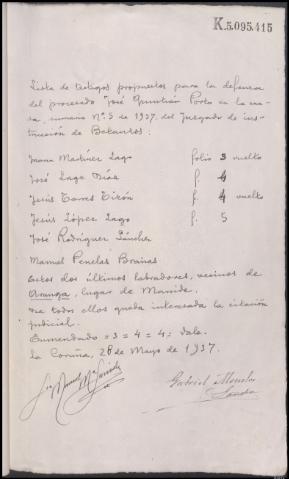 K.5.095.415
Lista de testigos propuestos para la defensa
del procesado José Quintián Porto en la cau-
sa, sumario Nº. 3 de 1937, del Juzgado de ins-
trucción de Betanzos:
Juana Martínez Lago folio 3 vuelto
José Lago Díaz f. 4
Jesús Torres Tirón f. 4 vuelto
Jesús López Lago f. 5
José Rodríguez Sánchez
Manuel Penelas Brañas
Estos dos últimos labradores, vecinos de
Aranga, lugar de
De todos ellos queda interesada la citación
judicial.
Enmendado = 3 = 4 = 4; vale.
La Coruña, 28 de Mayo de 1937.
Gabriel